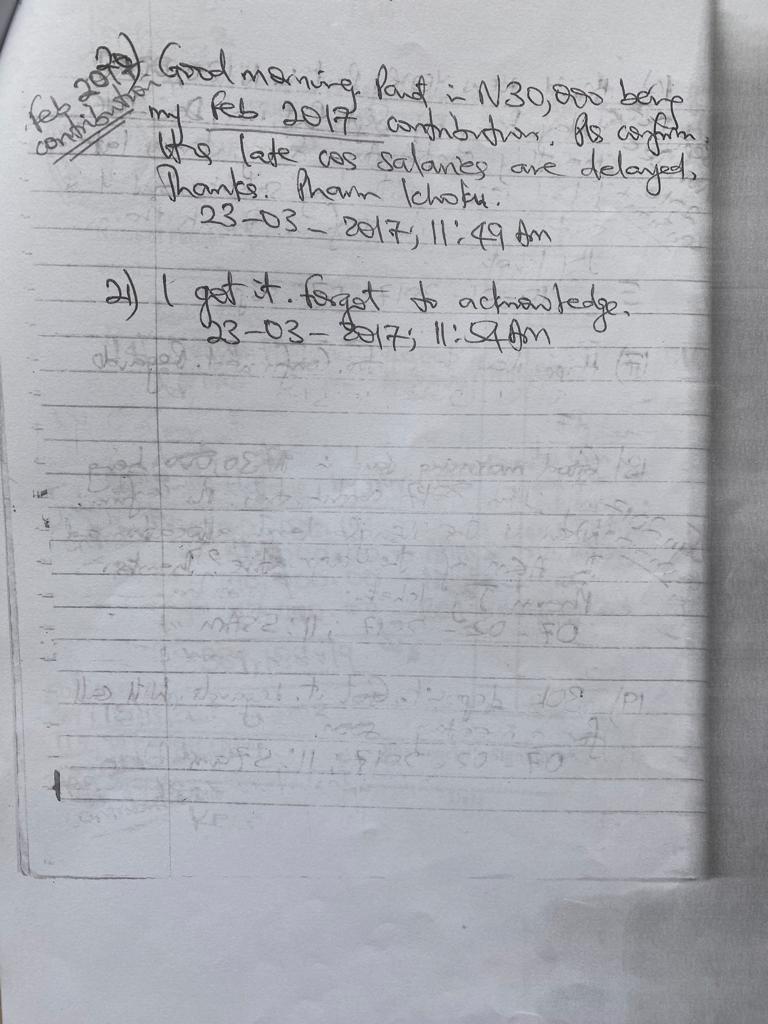 Feb 2017
contribution
20) Good morning. Paid in N30,000 being
my Feb 2017 contribution. Pls confirm.
late cos salaries are delayed,
Thanks. Pharm Ichoku.
23-03-2017, 11:49 Am
21) I get it. forgot to acknowledge.
23-03-2017; 11:54 Am